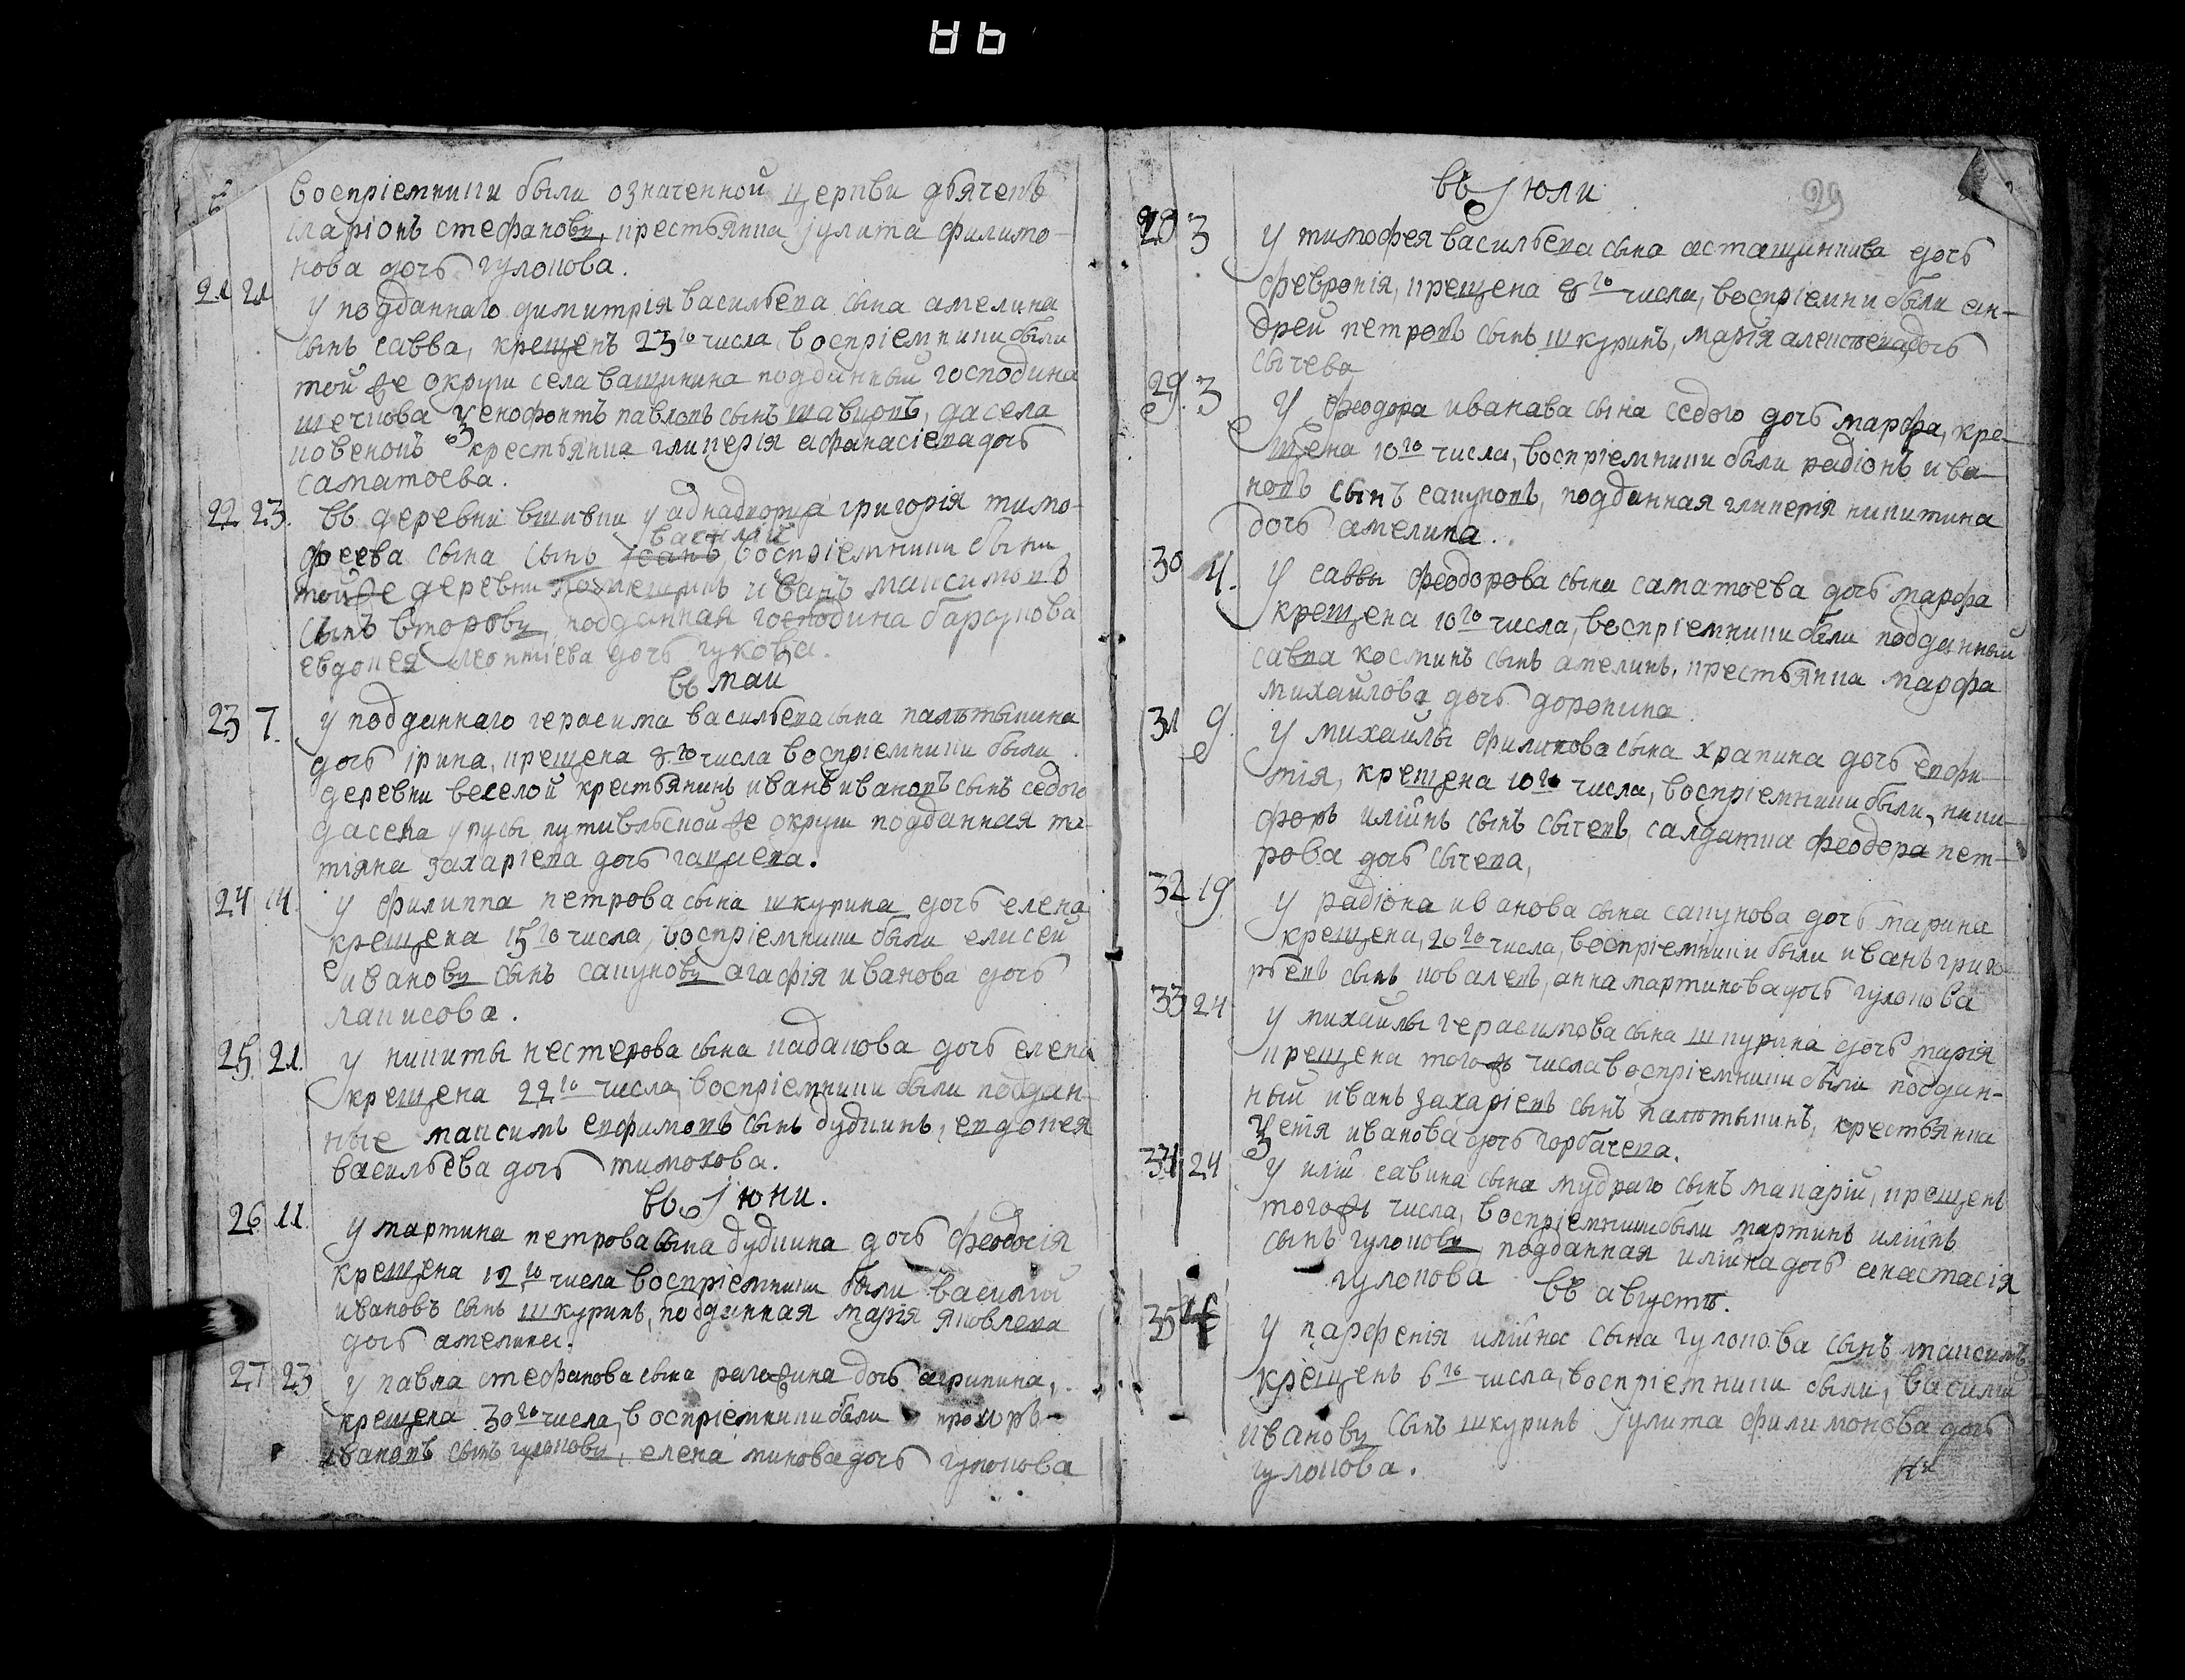 воспріемники были означенной церкви дьячекъ
іларіонъ стефановъ, крестьянка іулита филимо-
нова дочь гулонова.
21 21 у подданнаго димитрія васильева сына амелина
сынъ савва, крещенъ 23го числа, воспріемники были
той же округи села ващинина подданный господина
ксенофонтъ павловъ сынъ да села
крестьянка гликерія афанасіева дочь
саматоева.
22 23. въ деревни у аднадворца григорія тимо-
василій
феева сына сынъ воспріемники были
той же деревни иванъ максимовъ
сынъ второвъ, подданная господина
евдокея леонтіева дочь гукова.
въ маи
23 7. у подданнаго герасима васильева сына палътыкина
дочь ірина, крещена 8го числа воспріемники были
деревни веселой крестьянинъ иванъ ивановъ сынъ седого
да села путивльской же округи подданная та-
тіяна захаріева дочь
24 14. у филиппа петрова сына шкурина дочь елена
крещена 15го числа, воспріемники были елисей
ивановъ сынъ сапуновъ агафія иванова дочь
лаписова.
25. 21. у никиты нестерова сына кадакова дочь елена
крещена 22го числа, воспріемники были поддан-
ные максимъ евфимовъ сынъ дудкинъ, евдокея
васильева дочь тимохова.
въ Іюни.
26 11. у мартина петрова сына дудкина дочь феодосія
крещена 12го числа воспріемники были василій
ивановъ сынъ шкуринъ, подданная марія яковлева
дочь амелина.
27 23 у павла стефанова сына рагозина дочь агрипина,
крещена 30го числа, воспріемники были
ивановъ сынъ гулоновъ, елена минова дочь гулонова
29
въ Іюли
28 3 у тимофея васильева сына асташинкива дочь
февронія, крещена 8го числа, воспріемни были ан-
дрей петровъ сынъ шкуринъ, марія алексеева дочь
сычева
29. 3 у феодора иванава сына седого дочь марфа, кре-
щена 10го числа, воспріемники были радіонъ ива-
новъ сынъ сапуновъ, подданная гликерія никитина
дочь амелина.
30 4. у саввы феодорова сына саматоева дочь марфа
крещена 10го числа, воспріемники были подданный
савва косминъ сынъ амелинъ, крестьянка марфа
михайлова дочь доронина
31 9. у михайлы филипова сына храпина дочь евфи-
мія, крещена 10го числа, воспріемники были, ники-
форъ илійнъ сынъ сычевъ, салдатка феодора пет-
рова дочь сычева,
32 19 у радіона иванова сына сапунова дочь марина
крещена, 20го числа, воспріемники были иванъ григо-
рьевъ сынъ ковалевъ, анна мартинова дочь гулонова
33 24 у михайлы герасимова сына шкурина дочь марія
крещена того ж числа воспріемники были поддан-
ный иванъ захаріевъ сынъ палътыкинъ, крестьянка
ксенія иванова дочь горбачева.
34 24 у иліи савина сына мудраго сынъ макарій, крещенъ
того ж числа, воспріемники были мартинъ илійнъ
сынъ гулоновъ, подданная илійна дочь анастасія
гулонова въ августъ.
35 у парфенія илійна сына гулонова сынъ максимъ
крещенъ 6го числа, воспріемники были, василій
ивановъ сынъ шкуринъ іулита филимонова дочь
гулонова.